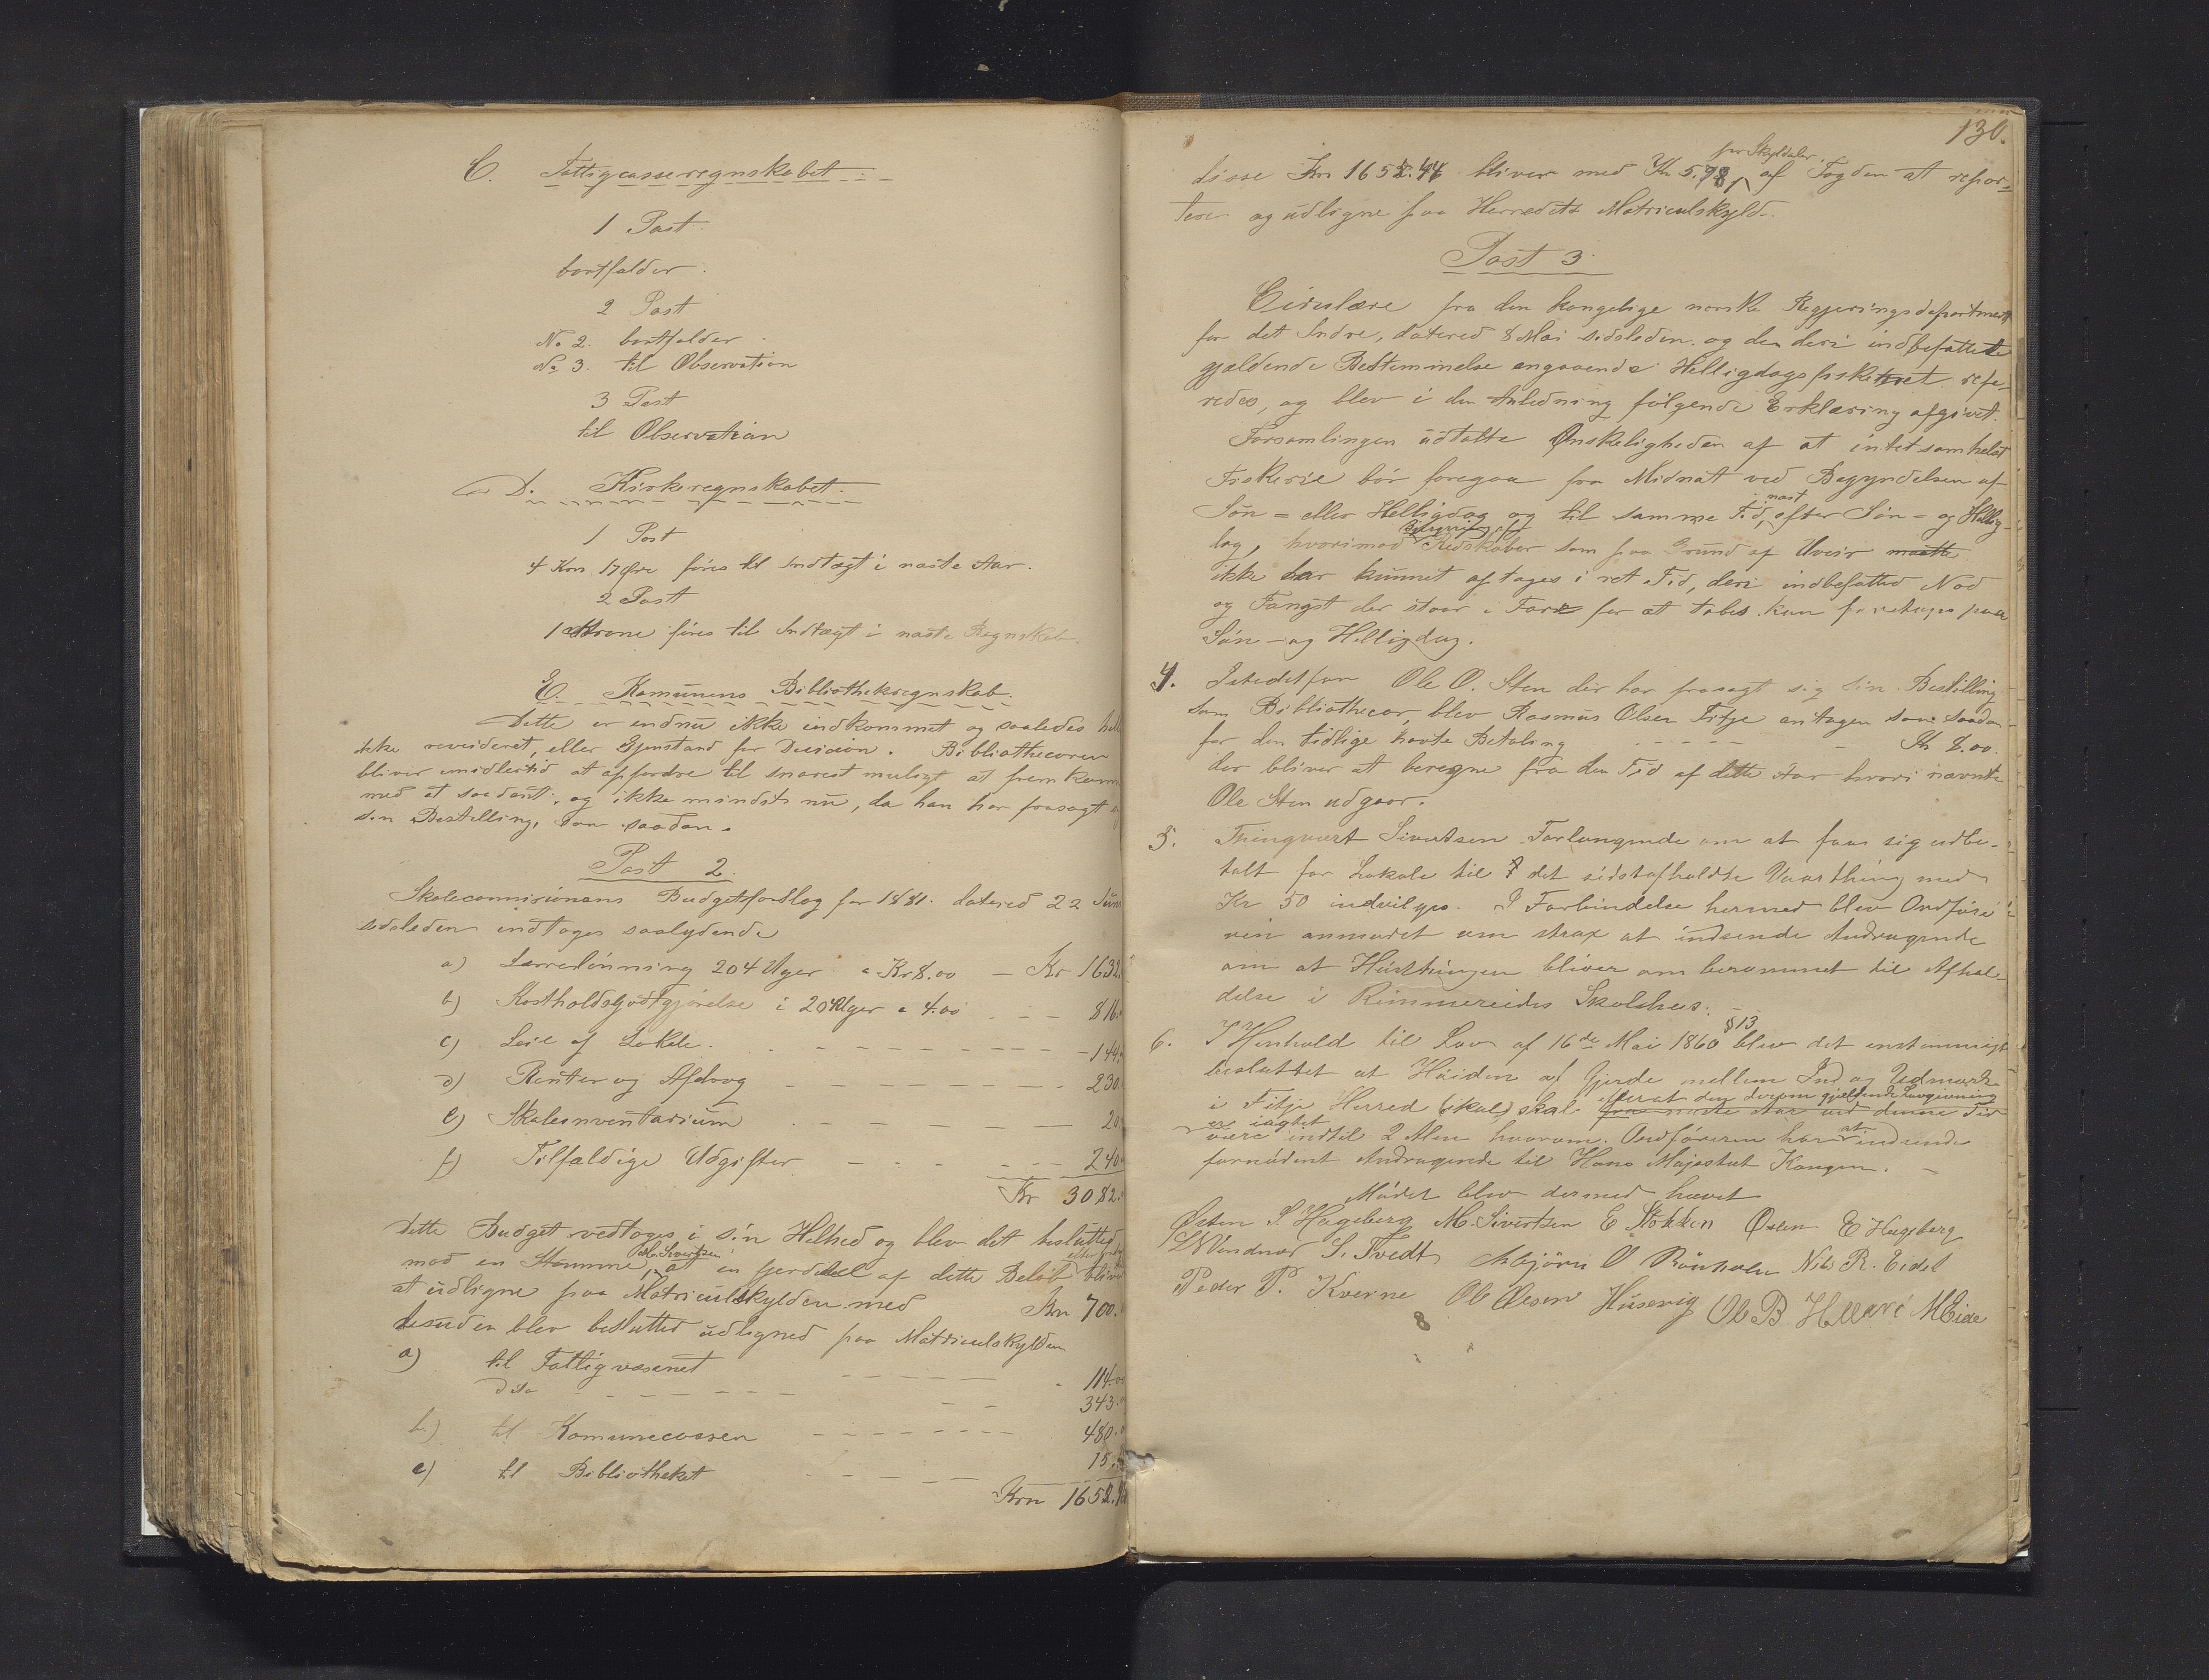 C. Fattigcasseregnskabet.
1 Post.
bortfalder.
2 Post
No 2. bortfalder.
No 3. til Observation
3 Post
til Observation
D. Kirkeregnskabet.
1 Post
4 Kro 17 Øre føres til Indtægt i næste Aar.
2 Post
1 Krone føres til Indtægt i næste Regnskab.
E. Komunens Bibliotheksregnskab.
Dette er endnu ikke indkommet og saaledes hell
ikke revideret, eller Gjenstand for Decision. Bibliothecaren
bliver imidlertid at opfordre til snarest muligt at fremkom
med et saadant, og ikke mindst nu, da han har frasagt
sin Bestilling, som saadan.
Post 2.
Skolecommisionens Budgetforslag for 1881. datered 22 Juni
sidsleden indtoges saalydende
a) Lærerlønning 204 Uger a Kr 8.00 — Kr 1632.
b) Kostholdsgodtgjørelse i 204 Uger a 4.00 - - - 816.
c) Leie af Lokale. - - - 144.
d) Renter og Afdrag - - - 230
e) Skoleinventarium - - - 20
f) Tilfældige Udgifter - - - 240
Kr 3082.
Dette Budget vedtoges i sin Helhed og blev det besluttet
mod en Stemme, M. Sivertsen at en fjerdedel af dette Beløb bliver
at udligne paa Matriculskylden med Krn 700.
desuden blev besluttet udligned paa Matriculskylden
a) til Fattigvæsenet - - - 114.00
dito - - - 343.
b.) til Komunecassen - - - 480.
c) til Bibliotheket - - - 15.
Krn 1652.
130.
disse Krn 1652.44 bliver med Kr 5.98 per Skyldaler af Fogden at repar-
tere og udligne paa Herredets Matriculskyld.
Post 3.
Circulære fra den kongelige norske Regjeringsdepartment
for det Indre, datered 8 Mai sidsleden og den deri indbefattede
gjældende Bestemmelse angaaende Helligdagsfiskeriet refe-
redes, og blev i den Anledning følgende Erklæring afgivet.
Forsamlingen udtalte Ønskeligheden af at intetsomhelst
Fiskerie bør foregaa fra Midnat ved Begyndelsen af
Søn- eller Helligdag og til samme Tid næst efter Søn- og Hellig-
dag, hvorimod Bjergning af Redskaber som paa Grund af Uveir maatte
ikke har kunnet aftages i ret Tid, deri indbefatted Nod
og Fangst der staar i Fare for at tabes kan foretages paa
Søn- og Helligdag.
4. Istedetfor Ole O. Sten der har frasagt sig sin Bestilling
som Bibliothecar, blev Rasmus Olsen Fitje antagen som saadan
for den tidlige havte Betaling - - - Kr 8.00.
der bliver at beregne fra den Tid af dette Aar hvori nævnte
Ole Sten udgaar.
5. Thingvært Sivertsen Forlangende om at faa sig udbe-
talt for Lokale til det sidstafholdte Vaarthing med
Kr 50 indvilges. I Forbindelse hermed blev Ordføre-
ren anmodet om strax at indsende Andragende
om at Høstthinget bliver om berammet til Afhol-
delse i Rimmereides Skolehus.
6. I Henhold til Lov af 16de Mai 1860 §13 blev det enstemmigt
besluttet at Høiden af Gjerde mellem Ind og Udmark
i Fitje Herred (skal) skal efterat den derom gjeldende Lovgivning
er iagtet
være indtil 2 Alen hvorom. Ordføreren har at indsende
fornødent Andragende til Hans Majestæt Kongen.
Mødet blev dermed hævet
Østen S. Hageberg M. Sivertsen E Stokken Østen E Hageberg
S. Tvedt Asbjørn O Rønholm Nils R. Eidet
Peder P. Kverne Ole Olesen Husevig Ole B M Eide